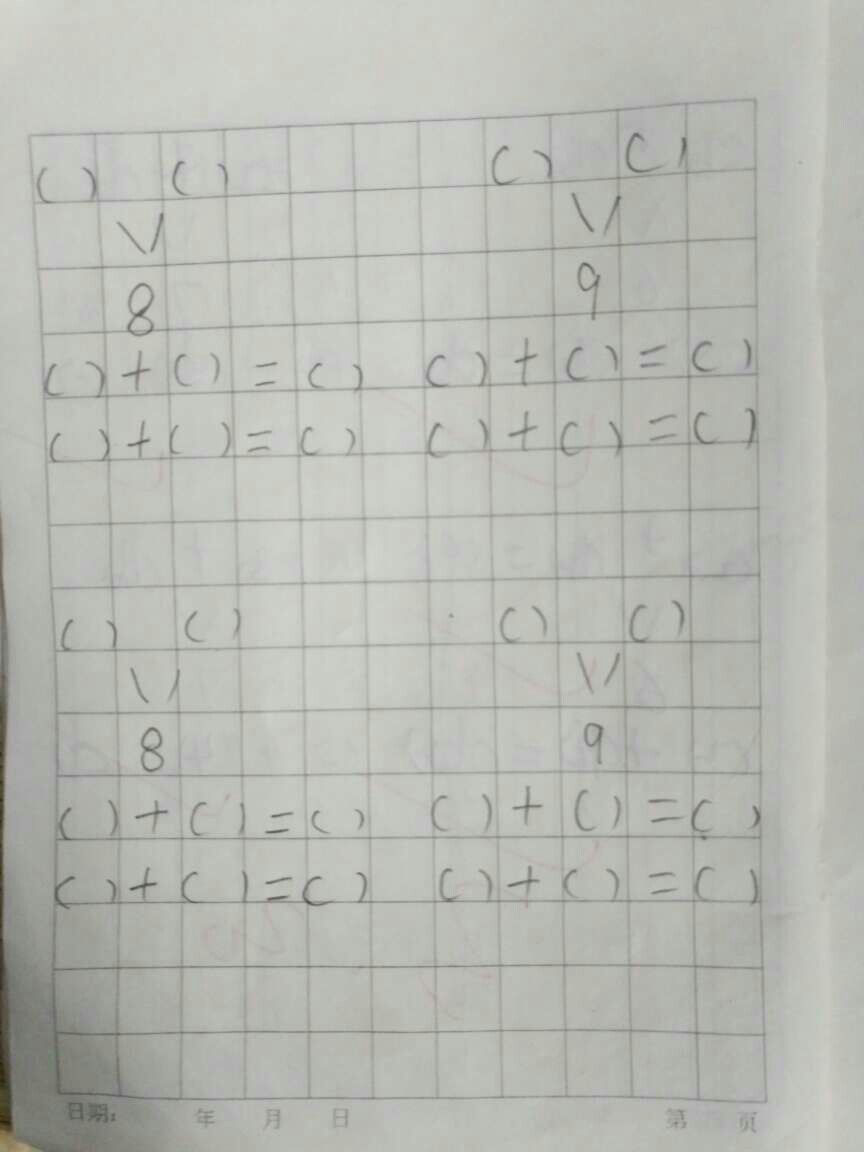 ( ) ( ) ( ) ( )
\/ \/
8 9
( ) + ( ) = ( ) ( ) + ( ) = ( )
( ) + ( ) = ( ) ( ) + ( ) = ( )
( ) ( ) ( ) ( )
\/ \/
8 9
( ) + ( ) = ( ) ( ) + ( ) = ( )
( ) + ( ) = ( ) ( ) + ( ) = ( )
日期: 年 月 日 第 页